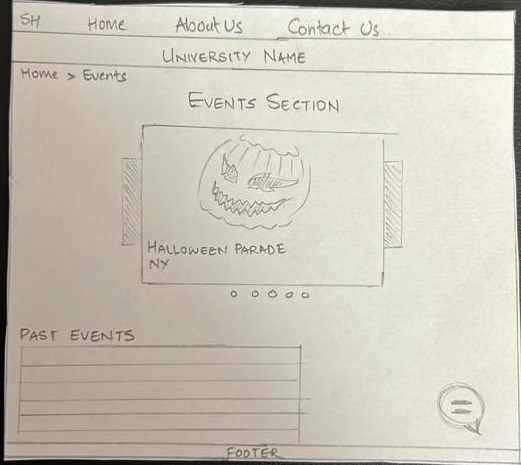 SH Home About Us Contact Us
UNIVERSITY NAME
Home > Events
EVENTS SECTION
HALLOWEEN PARADE
NY
PAST EVENTS
FOOTER